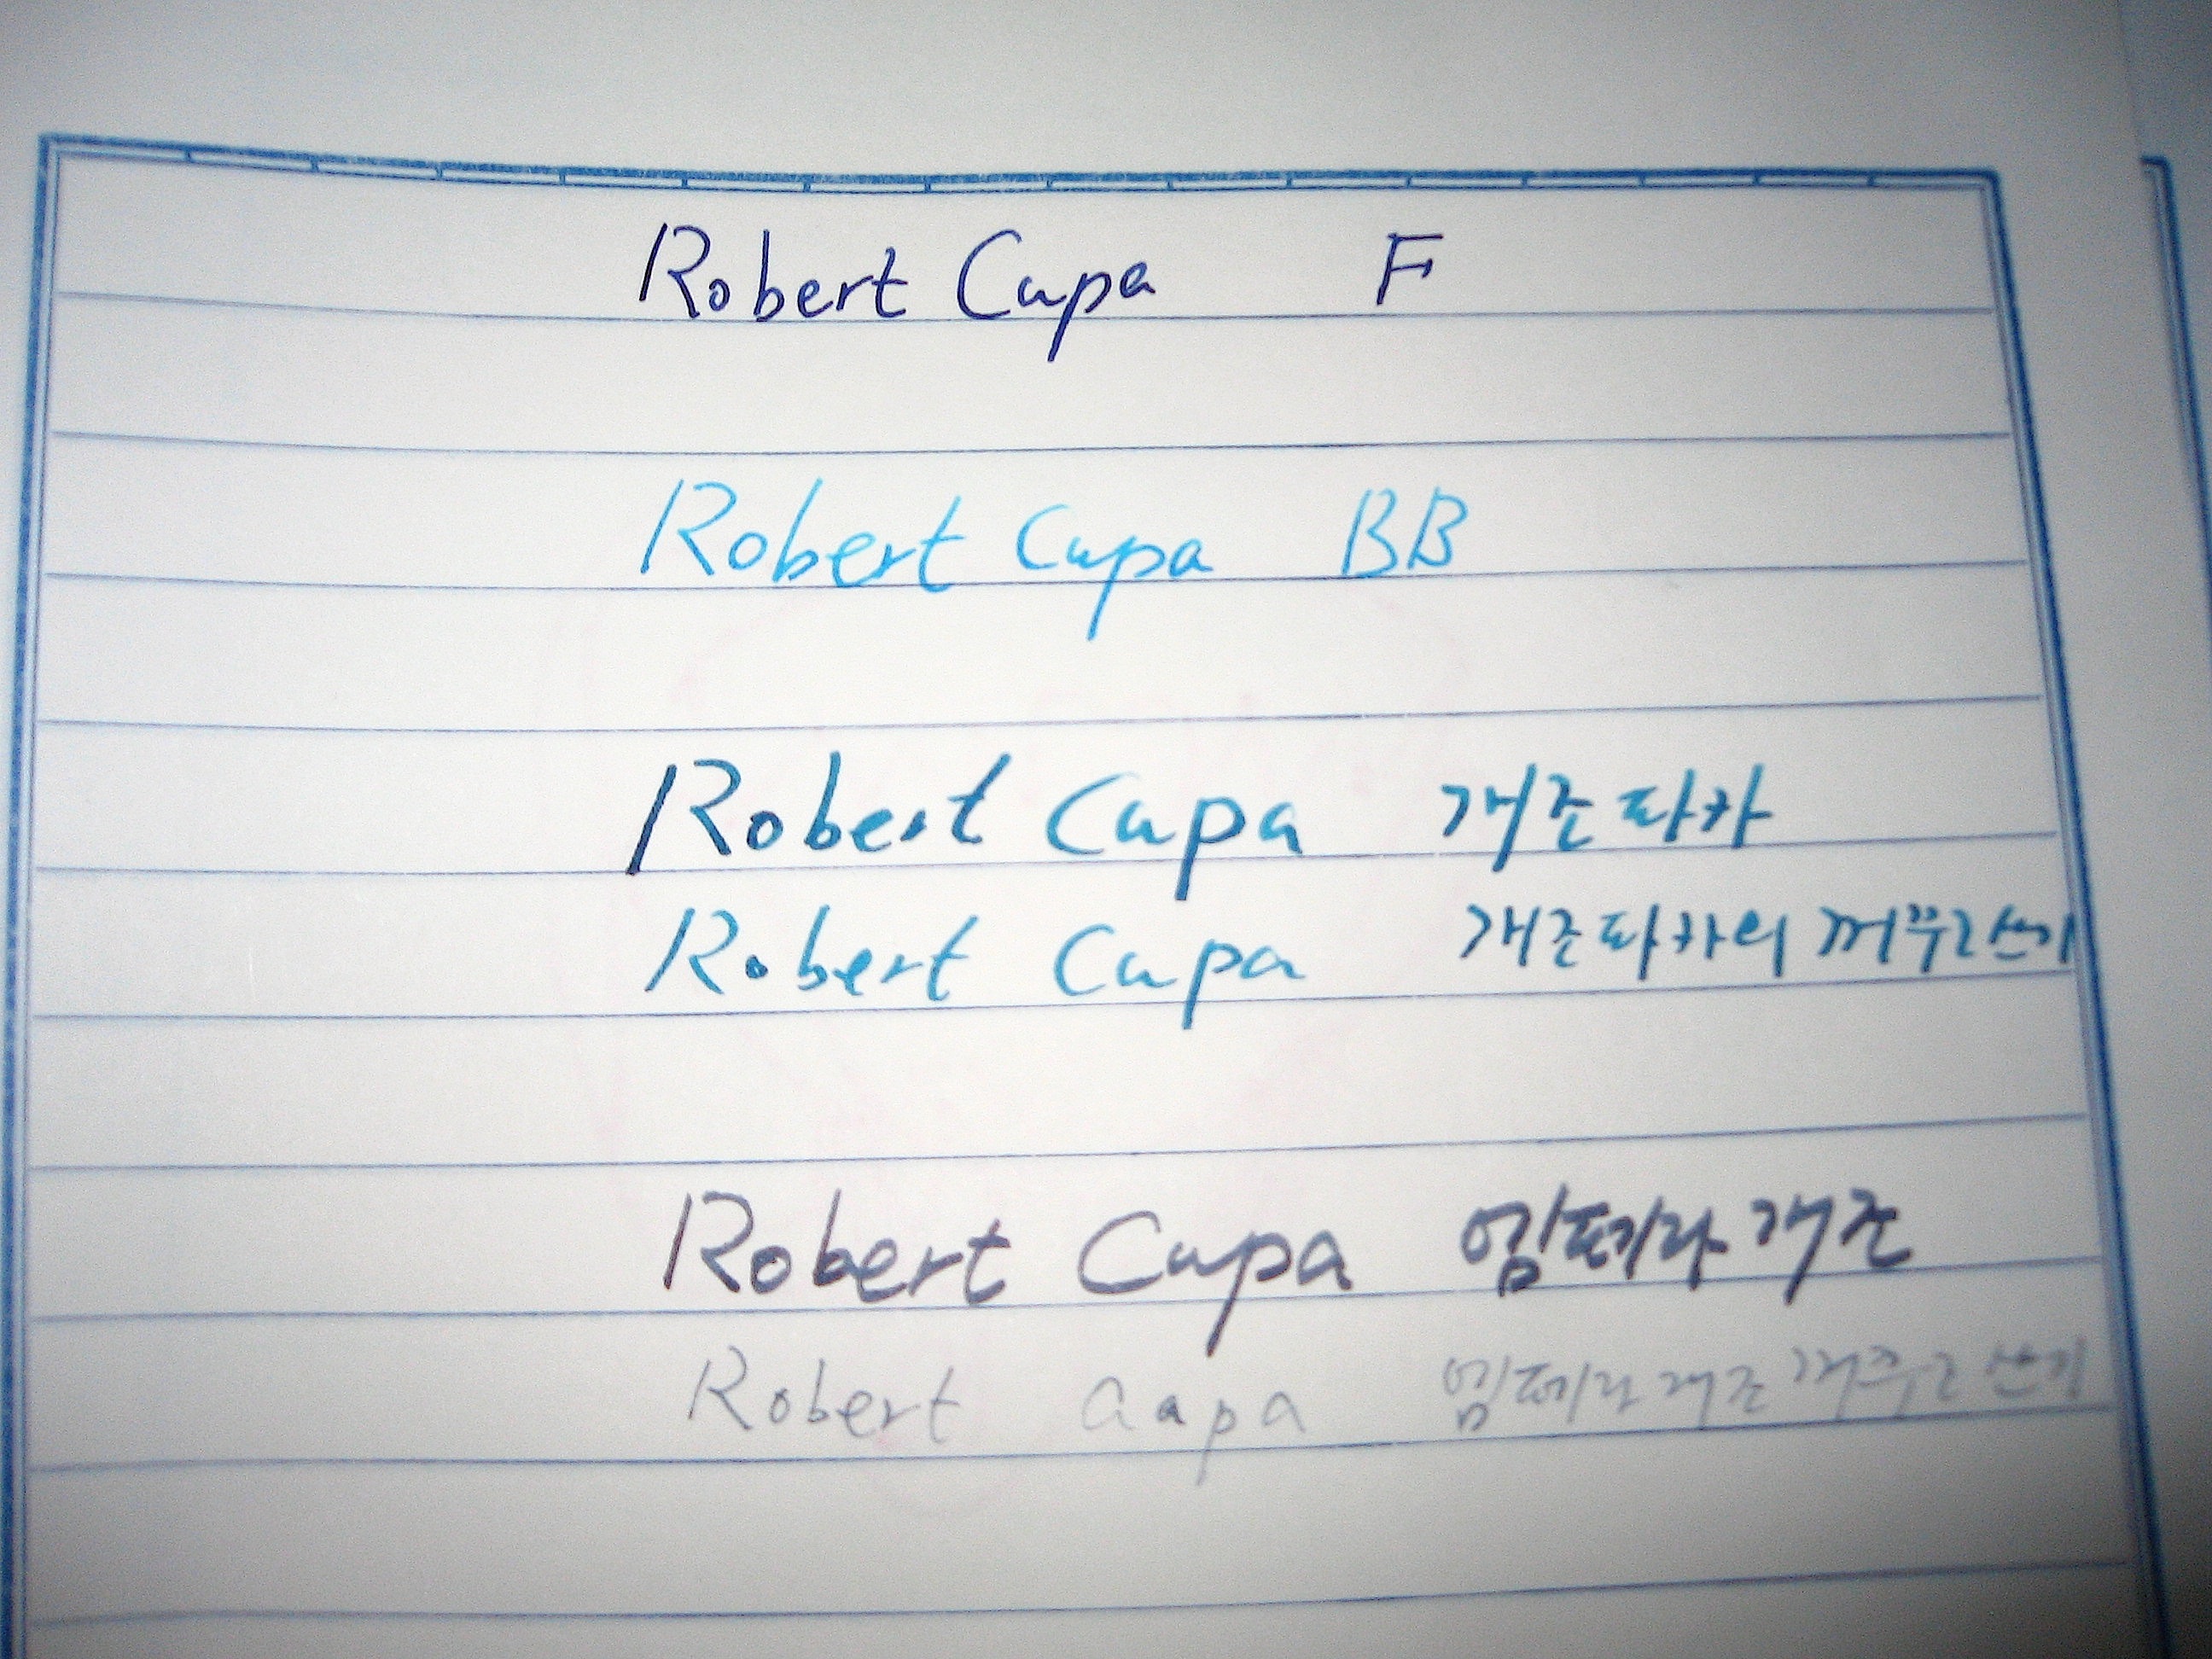 Robert Capa F
Robert Capa BB
Robert Capa 개조파카
Robert Capa 개조파카의 꺼꾸로쓰기
Robert Capa 임페라 개조
Robert Capa 임페라 개조 꺼꾸로 쓰기